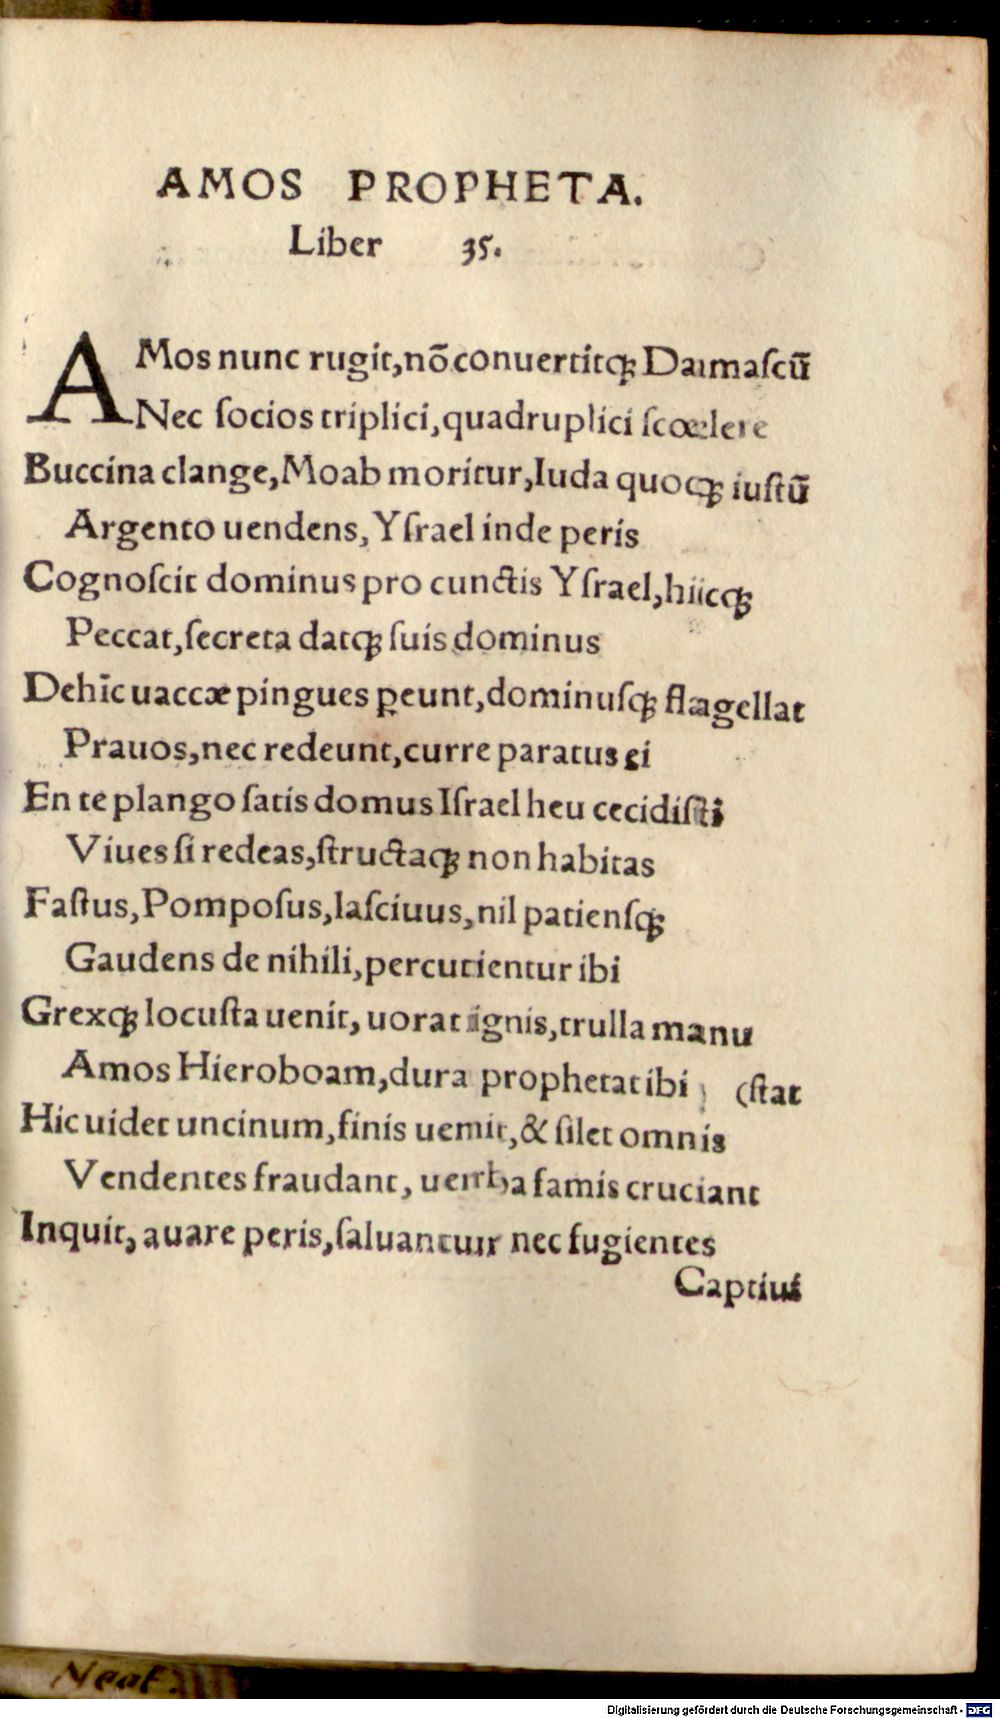 AMOS PROPHETA.
Liber 35.
AMos nunc rugit,nō conuertitqꝫ Damascū
Nec socios triplici,quadruplici scœlere
Buccina clange,Moab moritur,Iuda quoqꝫ iustū
Argento uendens, Ysrael inde peris
Cognoscit dominus pro cunctis Ysrael,hiicqꝫ
Peccat,secreta datqꝫ suis dominus
Dehīc uaccæ pingues ꝑeunt,dominusqꝫ flagellat
Prauos,nec redeunt,curre paratus ei
En te plango satis domus Israel heu cecidisti
Viues si redeas,structaqꝫ non habitas
Fastus,Pomposus,lasciuus,nil patiensqꝫ
Gaudens de nihili,percutientur ibi
Grexqꝫ locusta uenit, uorat ignis,trulla manu
Amos Hieroboam,dura prophetat ibi (stat
Hic uidet uncinum,finis uenit,& silet omnis
Vendentes fraudant, uerba famis cruciant
Inquit, auare peris,saluantur nec fugientes
Captiui
Digitalisierung gefördert durch die Deutsche Forschungsgemeinschaft - DFG